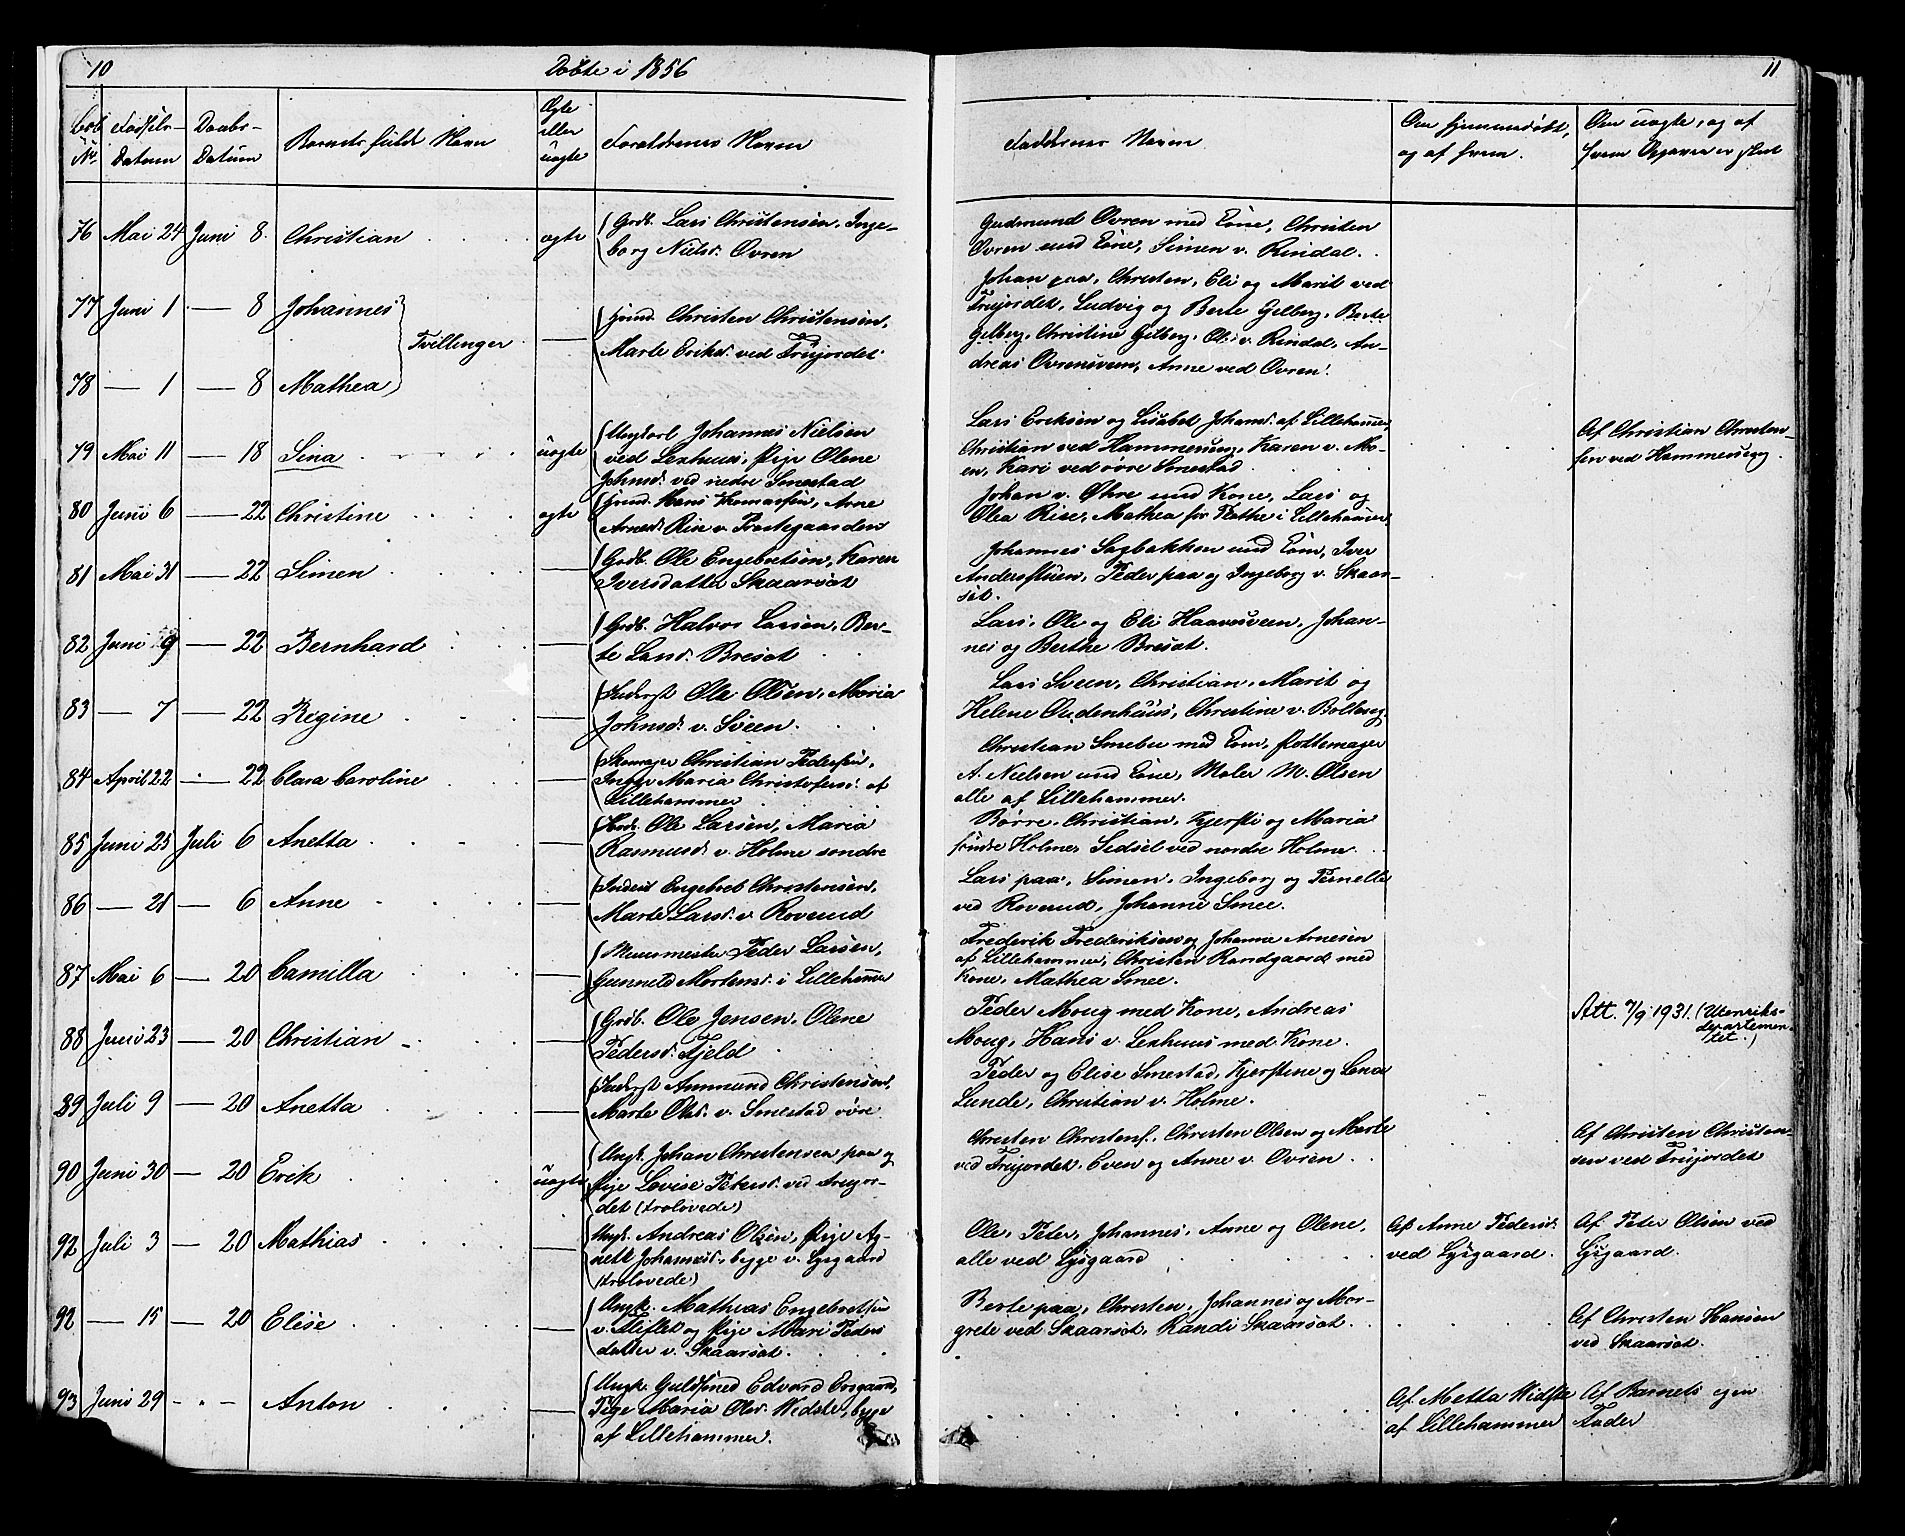 10
Døbte i 1856
Løb. No.
Fødsels-Datum
Daabs-Datum
Barnets fulde Navn
Ægte eller uægte
Forældrenes Navne
76 Mai 24 Juni 8. Christian ægte
Grdb. Lars Christensen, Inge-
borg Nielsd. Øvren
77 Juni 1 — 8 Johannes
Tvillinger
Christen Christensen,
Marte Eriksd. ved Trujordet
78 — 1 — 8 Mathea
79 Mai 11 — 18 Sina uægte
Ungkarl Johannes Nielsen
ved Lexhuus, Pige Olene
Johnsd. ved nedre Smestad
80 Juni 6 — 22 Christine ægte
Arne
Arnesd. Rise v. Prestegaarden
81 Mai 31 — 22 Simen
Grdb. Ole Engebretsen, Karen
Iversdatter Skaarsæt
82 Juni 9 — 22 Bernhard
Grdb. Halvor Larsen, Ber-
te Larsd. Bresæt
83 — 7 — 22 Regine
Inderst Ole Olsen, Maria
Johnsd. v. Sveen.
84 April 22 - 22 Clara Caroline
Skomager Christian Pedersen,
Inger Maria Christofersd. af
Lillehammer
85 Juni 25 Juli 6 Anetta
Ole Larsen, Maria
Rasmusd. v. Holme søndre
86 — 21 — 6 Anne
Inderst Engebret Christensen,
Marte Larsd. v. Roverud
87 Mai 6 — 20 Camilla
Muurmester Peder Larsen,
Gunnild Mortensd. i Lillehammer
88 Juni 23 — 20 Christian
Grdb. Ole Jensen, Olene
Pedersd. Fjeld
89 Juli 9 — 20 Anetta
Inderst Ammund Christensen,
Marte Olsd. v. Smestad øvre
90 Juni 30 — 20 Erik uægte
Ungk. Johan Christensen paa og
Pige Lovise Petersd. ved Trujor-
det (trolovede)
92 Juli 3 — 20 Mathias
Ungk. Andreas Olsen, Pige Ag-
nete Johannesd., begge v. Lysgaard
(trolovede)
92 — 15 — 20 Elise
Ungk. Mathias Engebretsen
v. Stiftet og Pige Mari Peders
datter v. Skaarsæt.
93 Juni 29 - - - Anton
Ungk. Guldsmed Edvard Ersgaard,
Pige Maria Olsd. Widste, begge
af Lillehammer.
11
Faddernes Navne
Om hjemmedøbt,
og af hvem.
Om uægte, og af
hvem Opgaven er skeet
Gudmund Øvren med Kone, Christen
Øvren med Kone, Simen v. Rindal.
Johan paa, Christen, Eli og Marit ved
Trujordet, Ludvig og Berte Gilberg, Berte
Gilberg, Christine Gilberg, Ole v. Rindal, An-
dreas Øvrensveen, Anne ved Øvren.
Lars Eriksen og Lisabet Johansd. af Lillehammer,
Christian ved Hammerseng, Karen v. Mo-
en, Kari ved øvre Smestad
Af Christian Christen-
sen ved Hammerseng.
Johan v. Øhre med Kone, Lars og
Olea Rise, Mathea for Flothe i Lillehammer
Johannes Sagbakken med Kone, Iver
Anderstuen, Peder paa og Ingeborg v. Skaar-
sæt.
Lars, Ole og Eli Haavesveen, Johan-
nes og Berthe Bresæt.
Lars Sveen, Christian, Marit og
Helene Oudenhuus, Christine v. Bolteseg
Christian Smebye med Kone, Pottemager
A. Nielsen med Kone, Maler M. Olsen
alle af Lillehammer.
Børre, Christian, Kjersti og Maria
søndre Holme, Sidsel ved nordre Holme.
Lars paa, Simen, Ingeborg og Pernelle
ved Roverud, Johanne Smee.
Frederik Frederiksen og Johanne Arnesen
af Lillehammer, Christen Randgaard med
Kone, Mathea Smee.
Peder Moug med Kone, Andreas
Moug, Hans v. Lexhuus med Kone.
Att. 7/9 1931. (Utenriks-
departemen-
tet.)
Peder og Elise Smestad, Kjerstine og Lena
Lunde, Christian v. Holme.
Christen Christens., Christen Olsen og Marte
ved Trujordet, Even og Anne v. Øvren
Af Christen Christen-
sen ved Trujordet
Ole, Peter, Johannes, Anne og Olene,
alle ved Lysgaard
Af Anne Pedersd.
ved Lysgaard.
Af Peter Olsen ved
Lysgaard.
Berte paa, Christen, Johannes og Mar-
grete ved Skaarsæt, Randi Skaarsæt.
Af Christen Hansen
ved Skaarsæt.
Af Metta Widste
af Lillehammer
Af Barnets egen
Fader